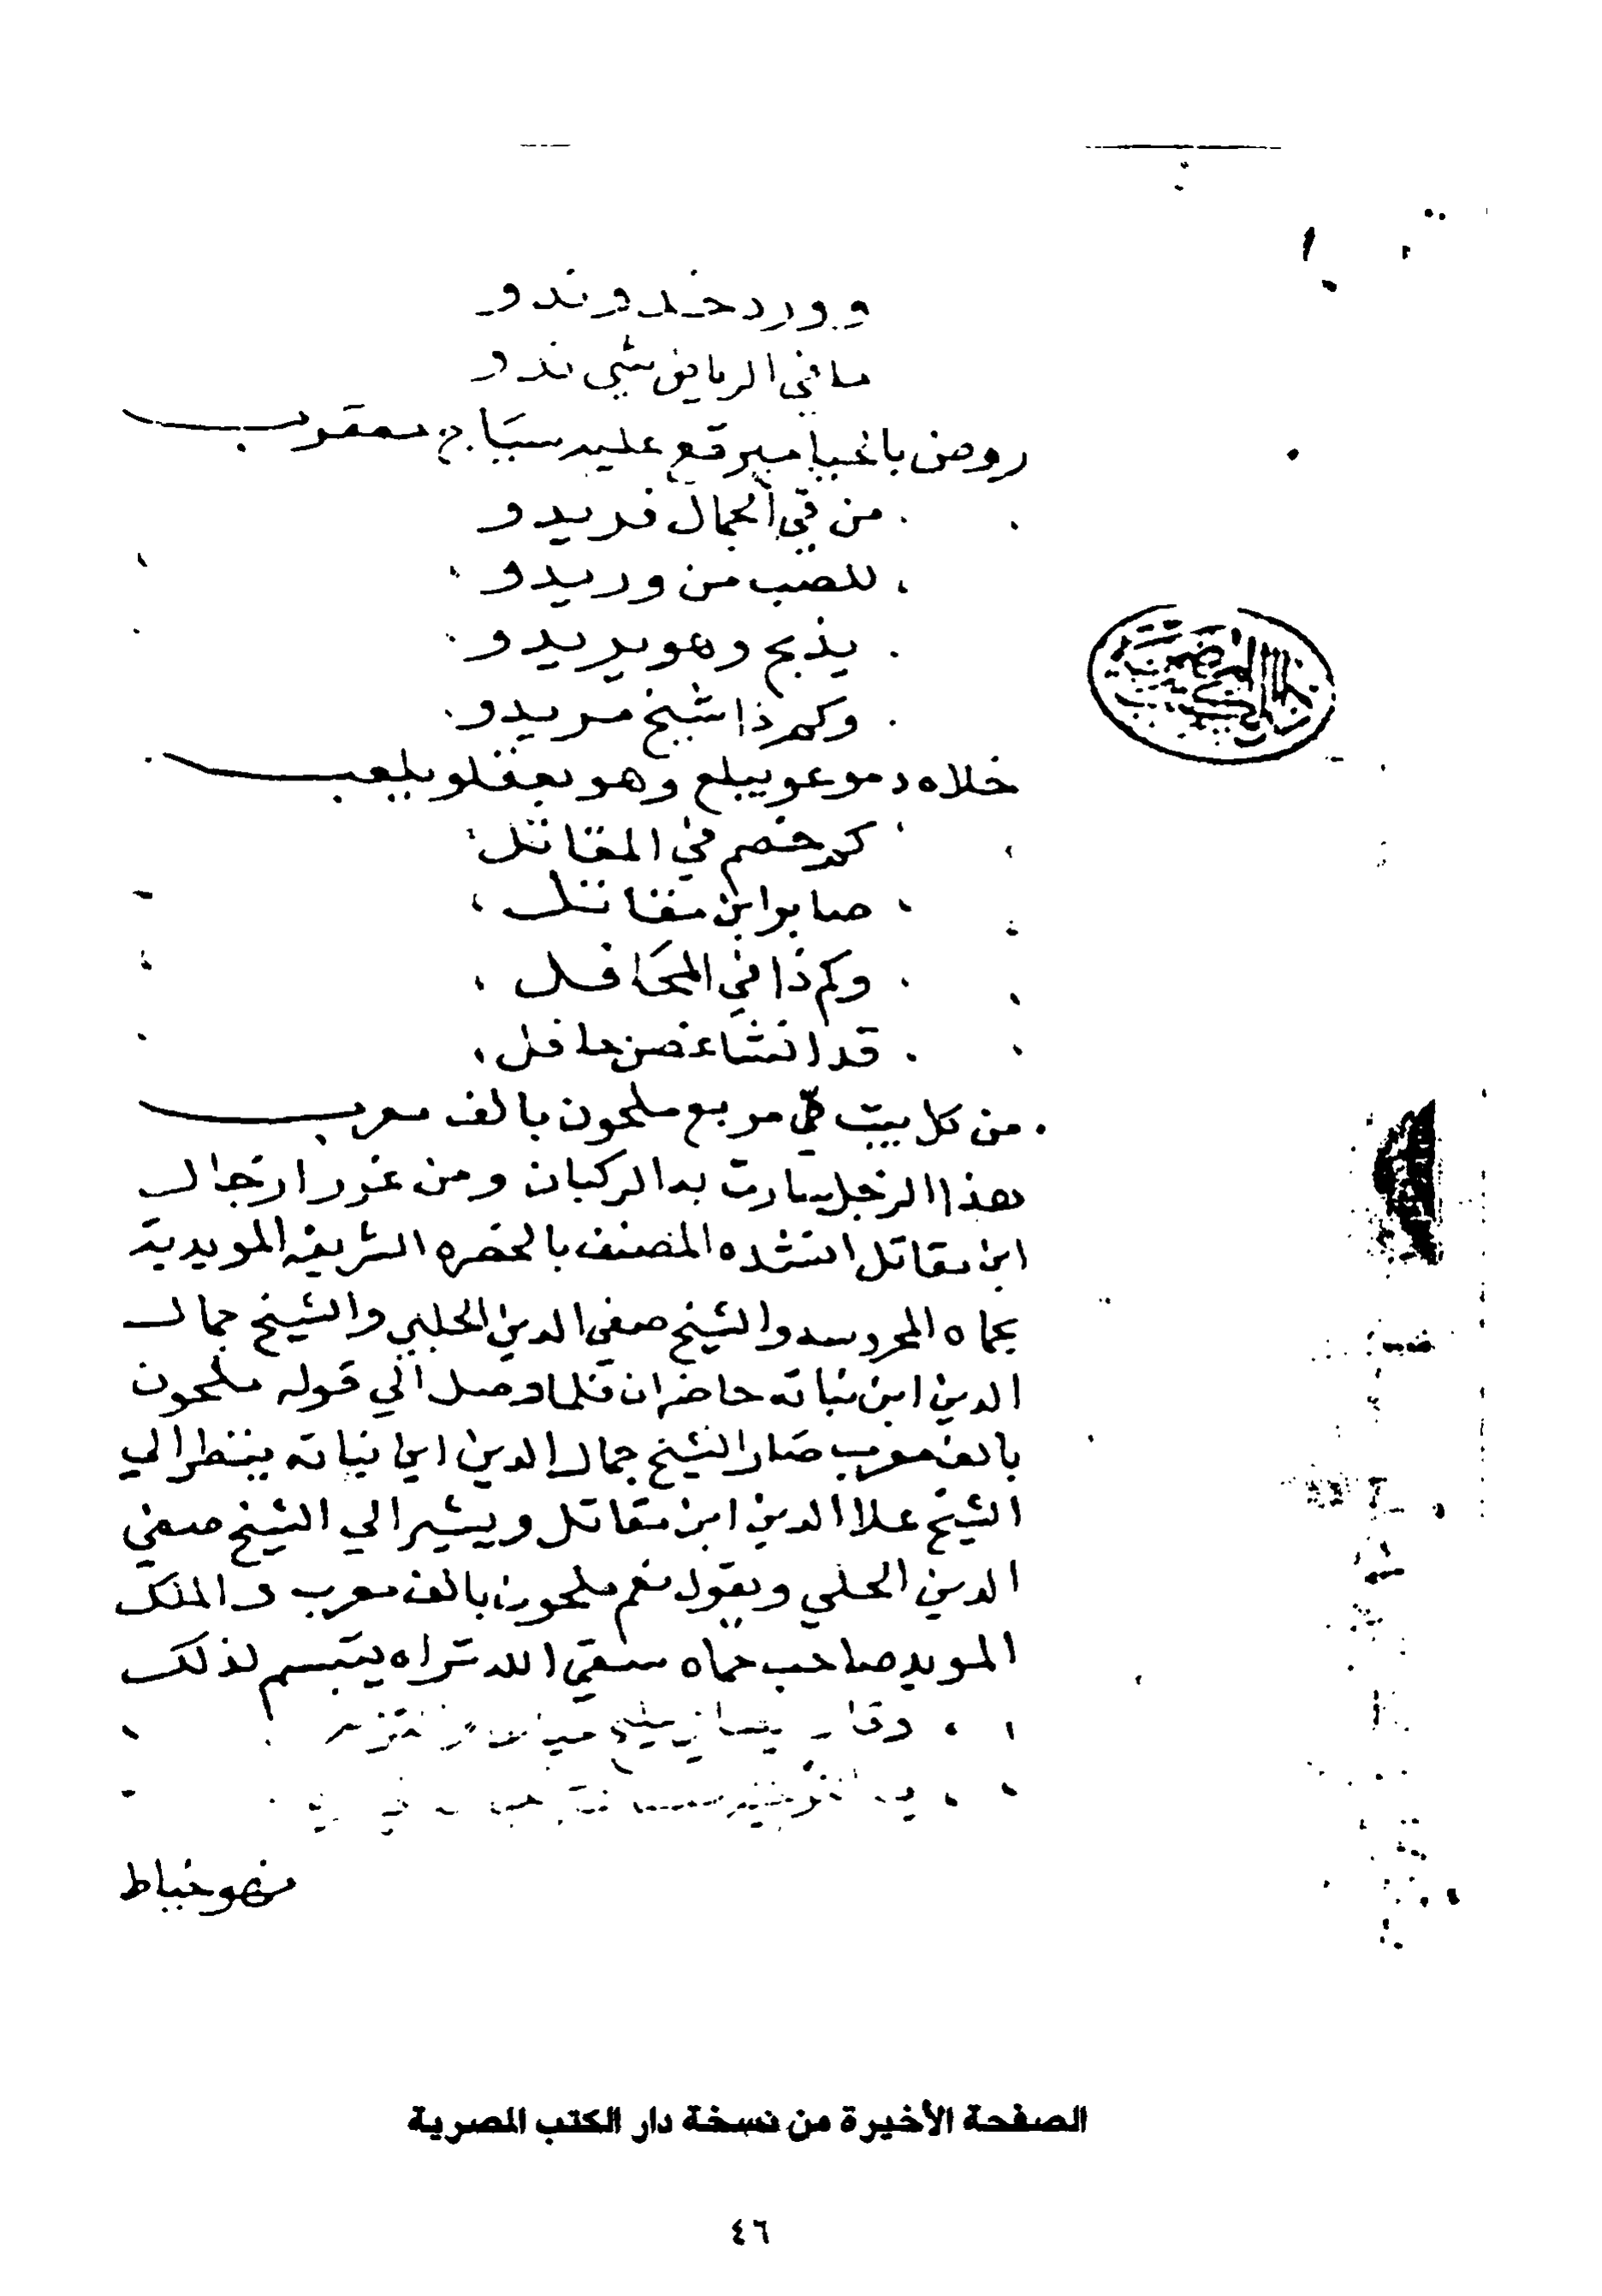 وورد خدو ندو
ما في الرياض شي ندو
روض بالحيا مبرقع عليه سياج معقرب
من في الجمال فريدو
للصب من وريدو
يذبح وهو يريدو
وكم ذا شيخ مريدو
خلاه دموعو يبلع وهو بعقلو يلعب
كم خصم في المقاتل
صابو ابن مقاتل
وكم ذا في المحافل
قد انشا غصن حافل
من كل بيت في مربع ملحون بالف معرب
هذا الزجل سارت به الركبان ومن غرر ازجال
ابن مقاتل انشده المصنف بالحضره الشريفه المويدية
بحماه المحروسه والشيخ صفي الدين الحلي والشيخ جمال
الدين ابن نباته حاضران فلما وصل الي قوله ملحون
بالف معرب صار الشيخ جمال الدين ابن نباته ينظر الي
الشيخ علاا الدين ابن مقاتل ويشير الي الشيخ صفي
الدين الحلي ويقول نعم ملحون بالف معرب و الملك
المويد صاحب حماه سقي الله تراه يتبسم لذلك
وقال
فهو خباط
الصفحة الأخيرة من نسخة دار الكتب المصرية
٤٦